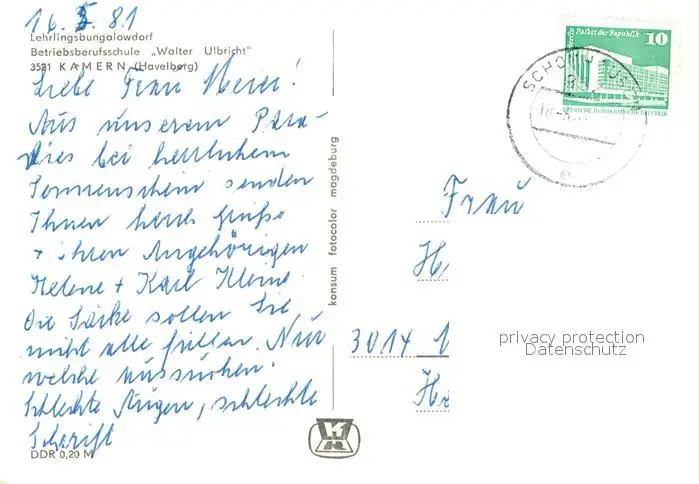 16. 5. 81
Lehrlingsbungalowdorf
Betriebsberufsschule „Walter Ulbricht"
3521 KAMERN (Havelberg)
Liebe Frau Meier!
Aus unserem Para-
dies bei herrlichem
Sonnenschein senden
Ihnen herzl. Grüße
+ ihren Angehörigen
Helene + Karl Kleine.
Die Säcke sollen Sie
nicht alle füllen. Nur
welche aussuchen.
Schlechte Augen, schlechte
Schrift
DDR 0,20 M
konsum fotocolor magdeburg
Berlin Palast der Republik 10
DEUTSCHE DEMOKRATISCHE REPUBLIK
SCHÖNHAUSEN
Frau
H
3014
privacy protection
Datenschutz